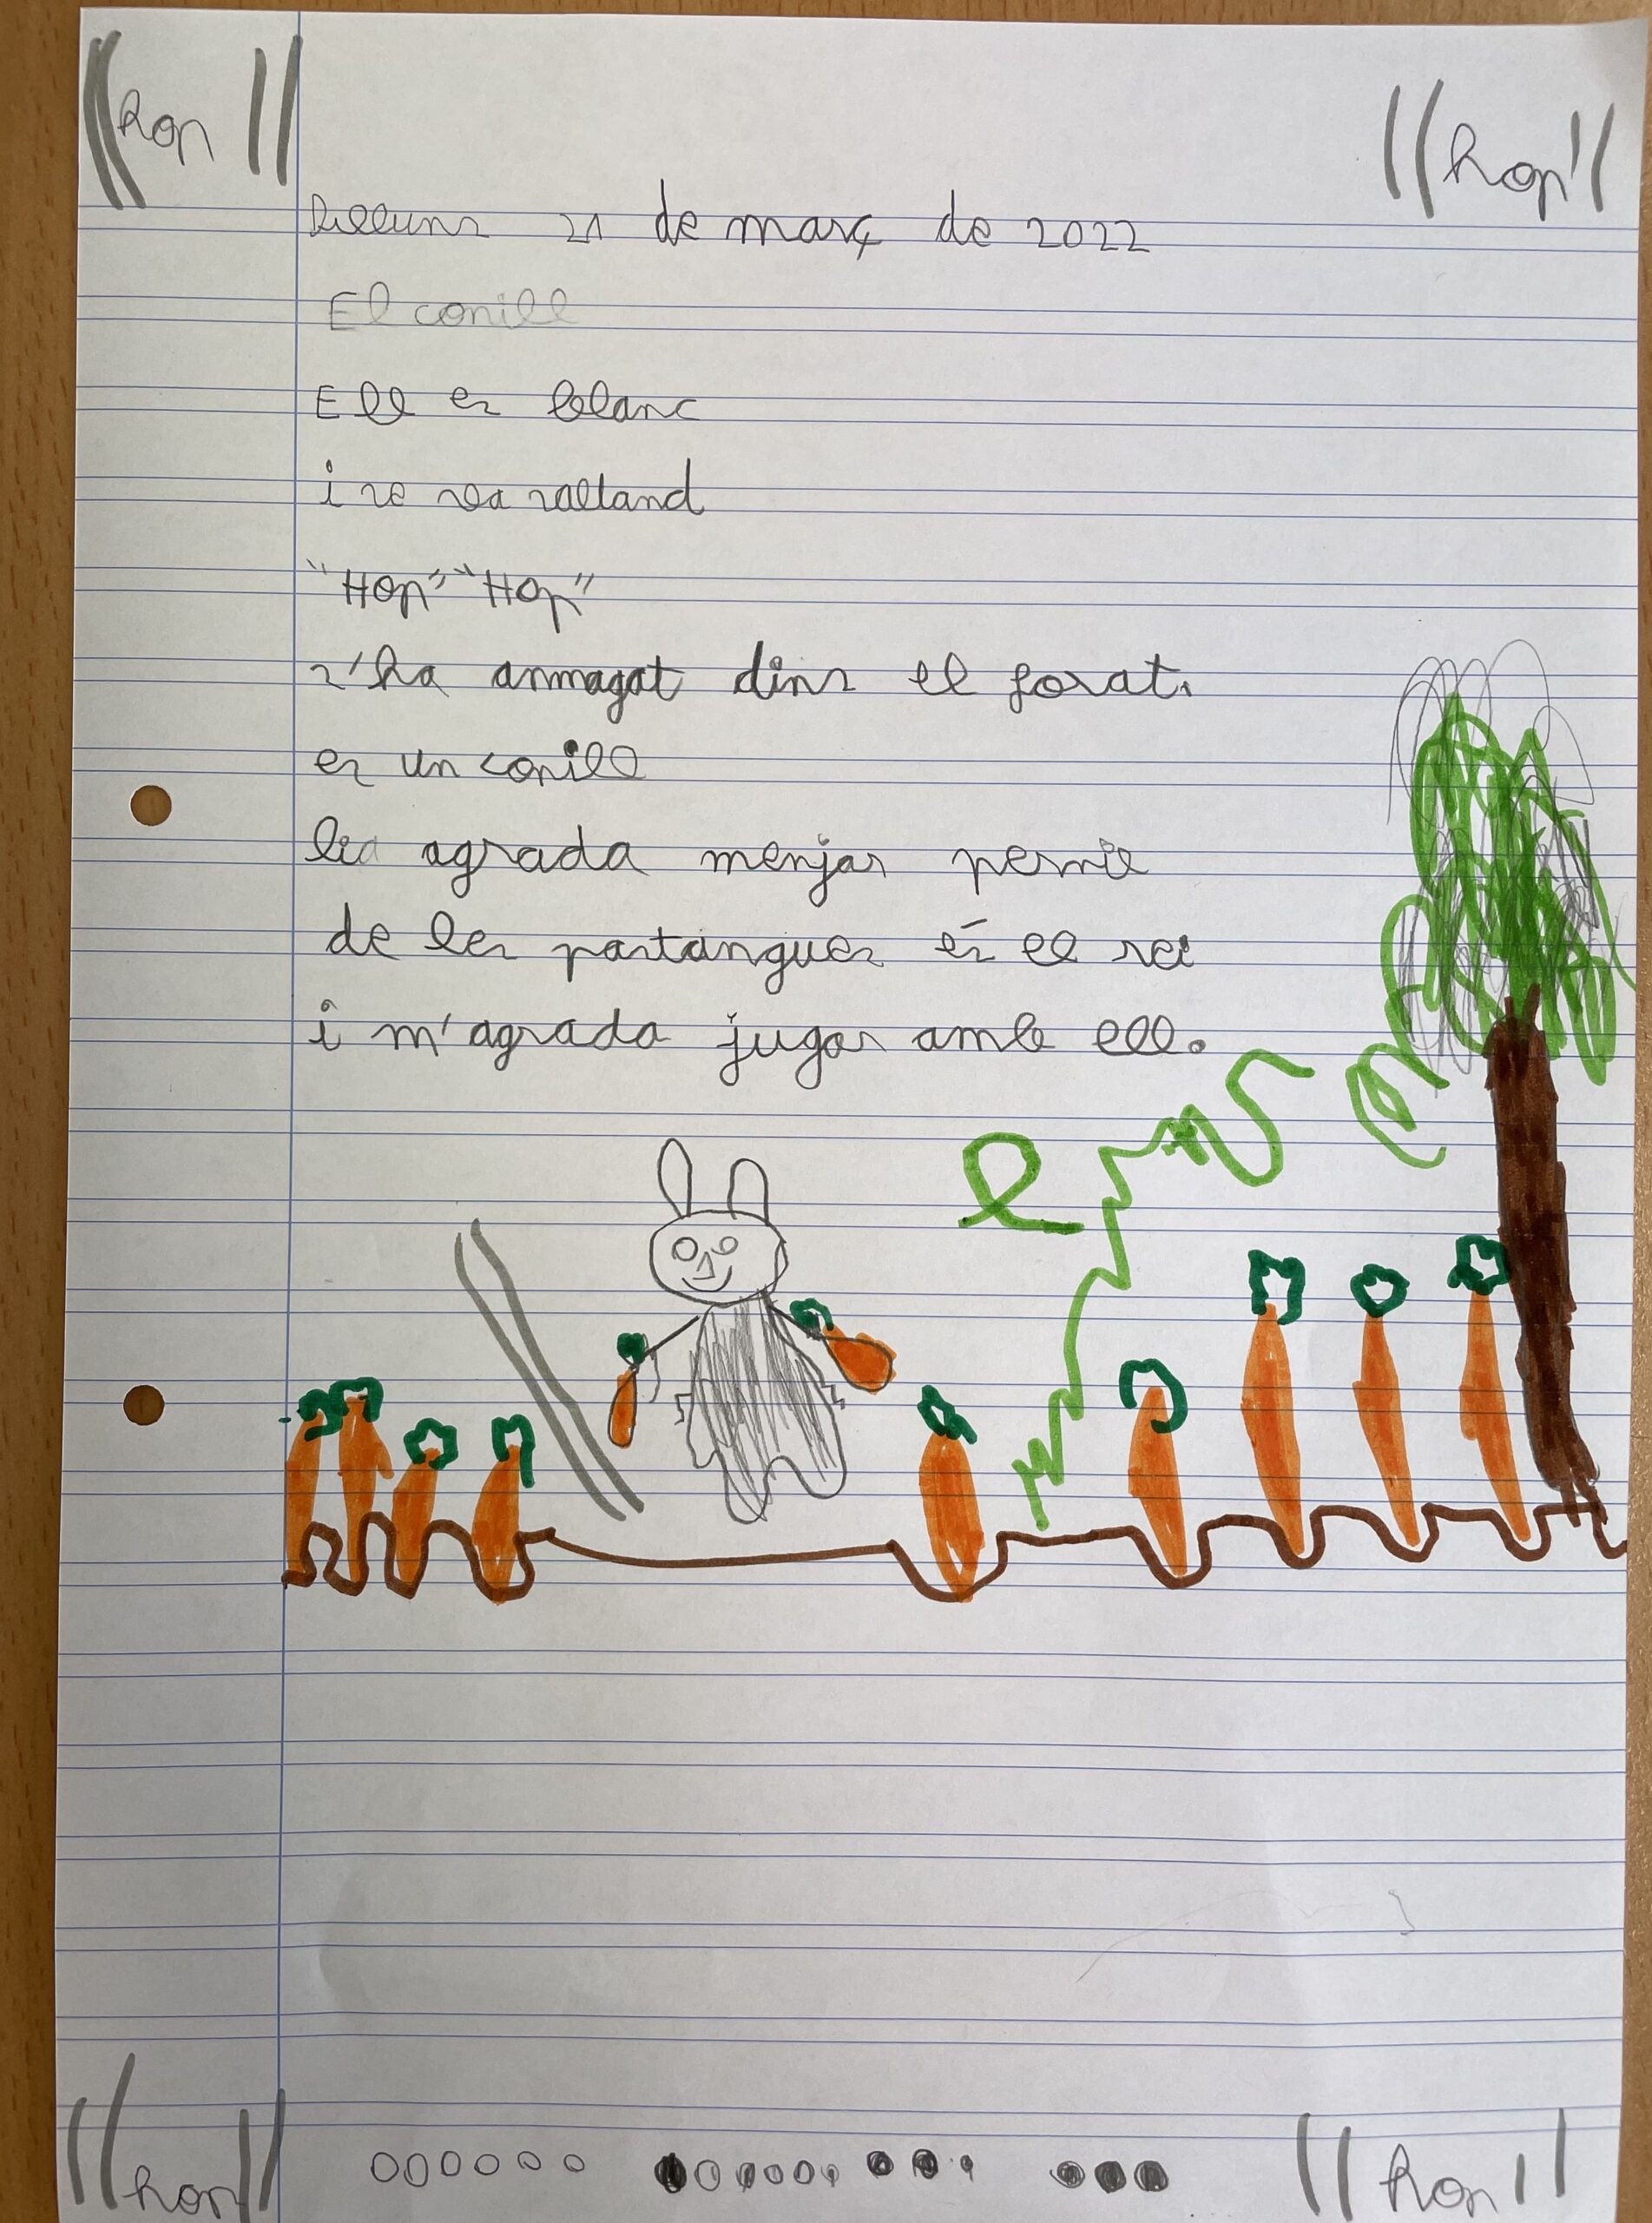 "hop"
"hop"
Dilluns 21 de març de 2022
El conill
Ell es blanc
i se va saltand
"Hop" "Hop"
s'ha anmagat dins el forat.
es un conill
li agrada menjar pernil
de les pastangues és el rei
i m'agrada jugar amb ell.
"hop"
"hop"